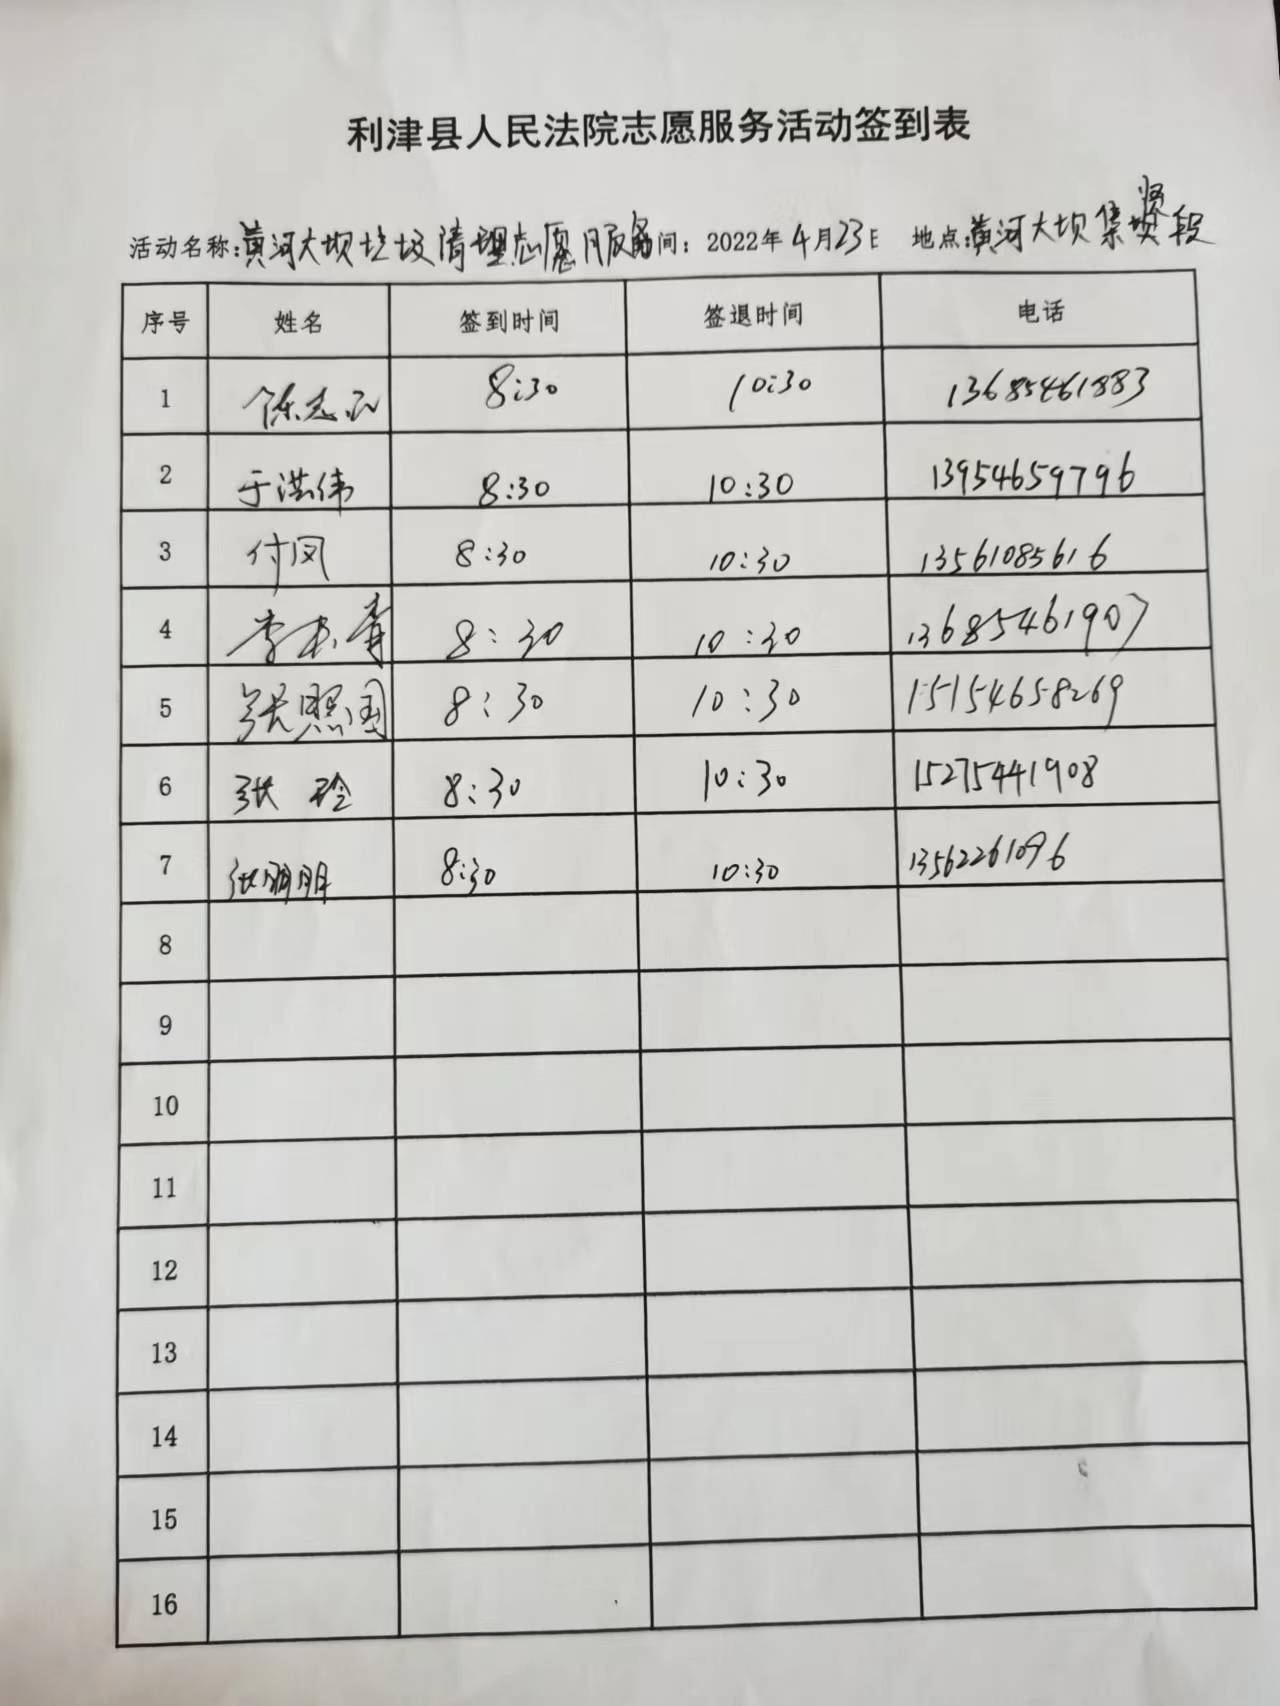 利津县人民法院志愿服务活动签到表
活动名称:黄河大坝垃圾清理志愿服务间：2022年4月23日 地点:黄河大坝集贤坝段
序号 姓名 签到时间 签退时间 电话
1 陈志 8:30 10:30 13685461883
2 于洪伟 8:30 10:30 13954659796
3 付凤 8:30 10:30 13561085616
4 李青 8:30 10:30 13685461907
5 张照国 8:30 10:30 15154658269
6 张玲 8:30 10:30 15275441908
7 张朋朋 8:30 10:30 13562261096
8
9
10
11
12
13
14
15
16